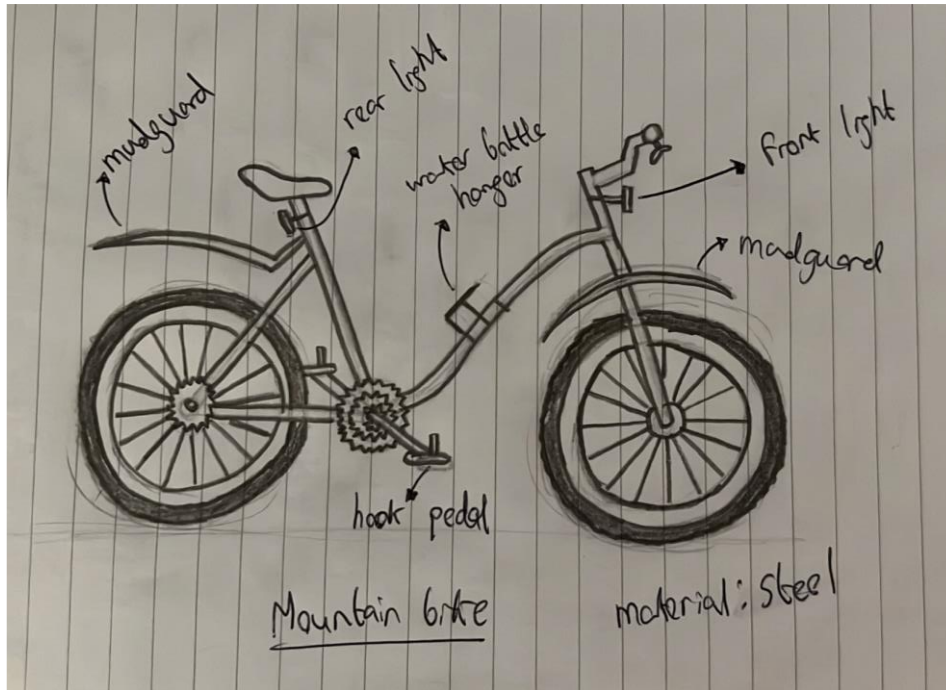 mudguard
rear light
water bottle
hanger
front light
mudguard
hook pedal
Mountain bike
material: Steel